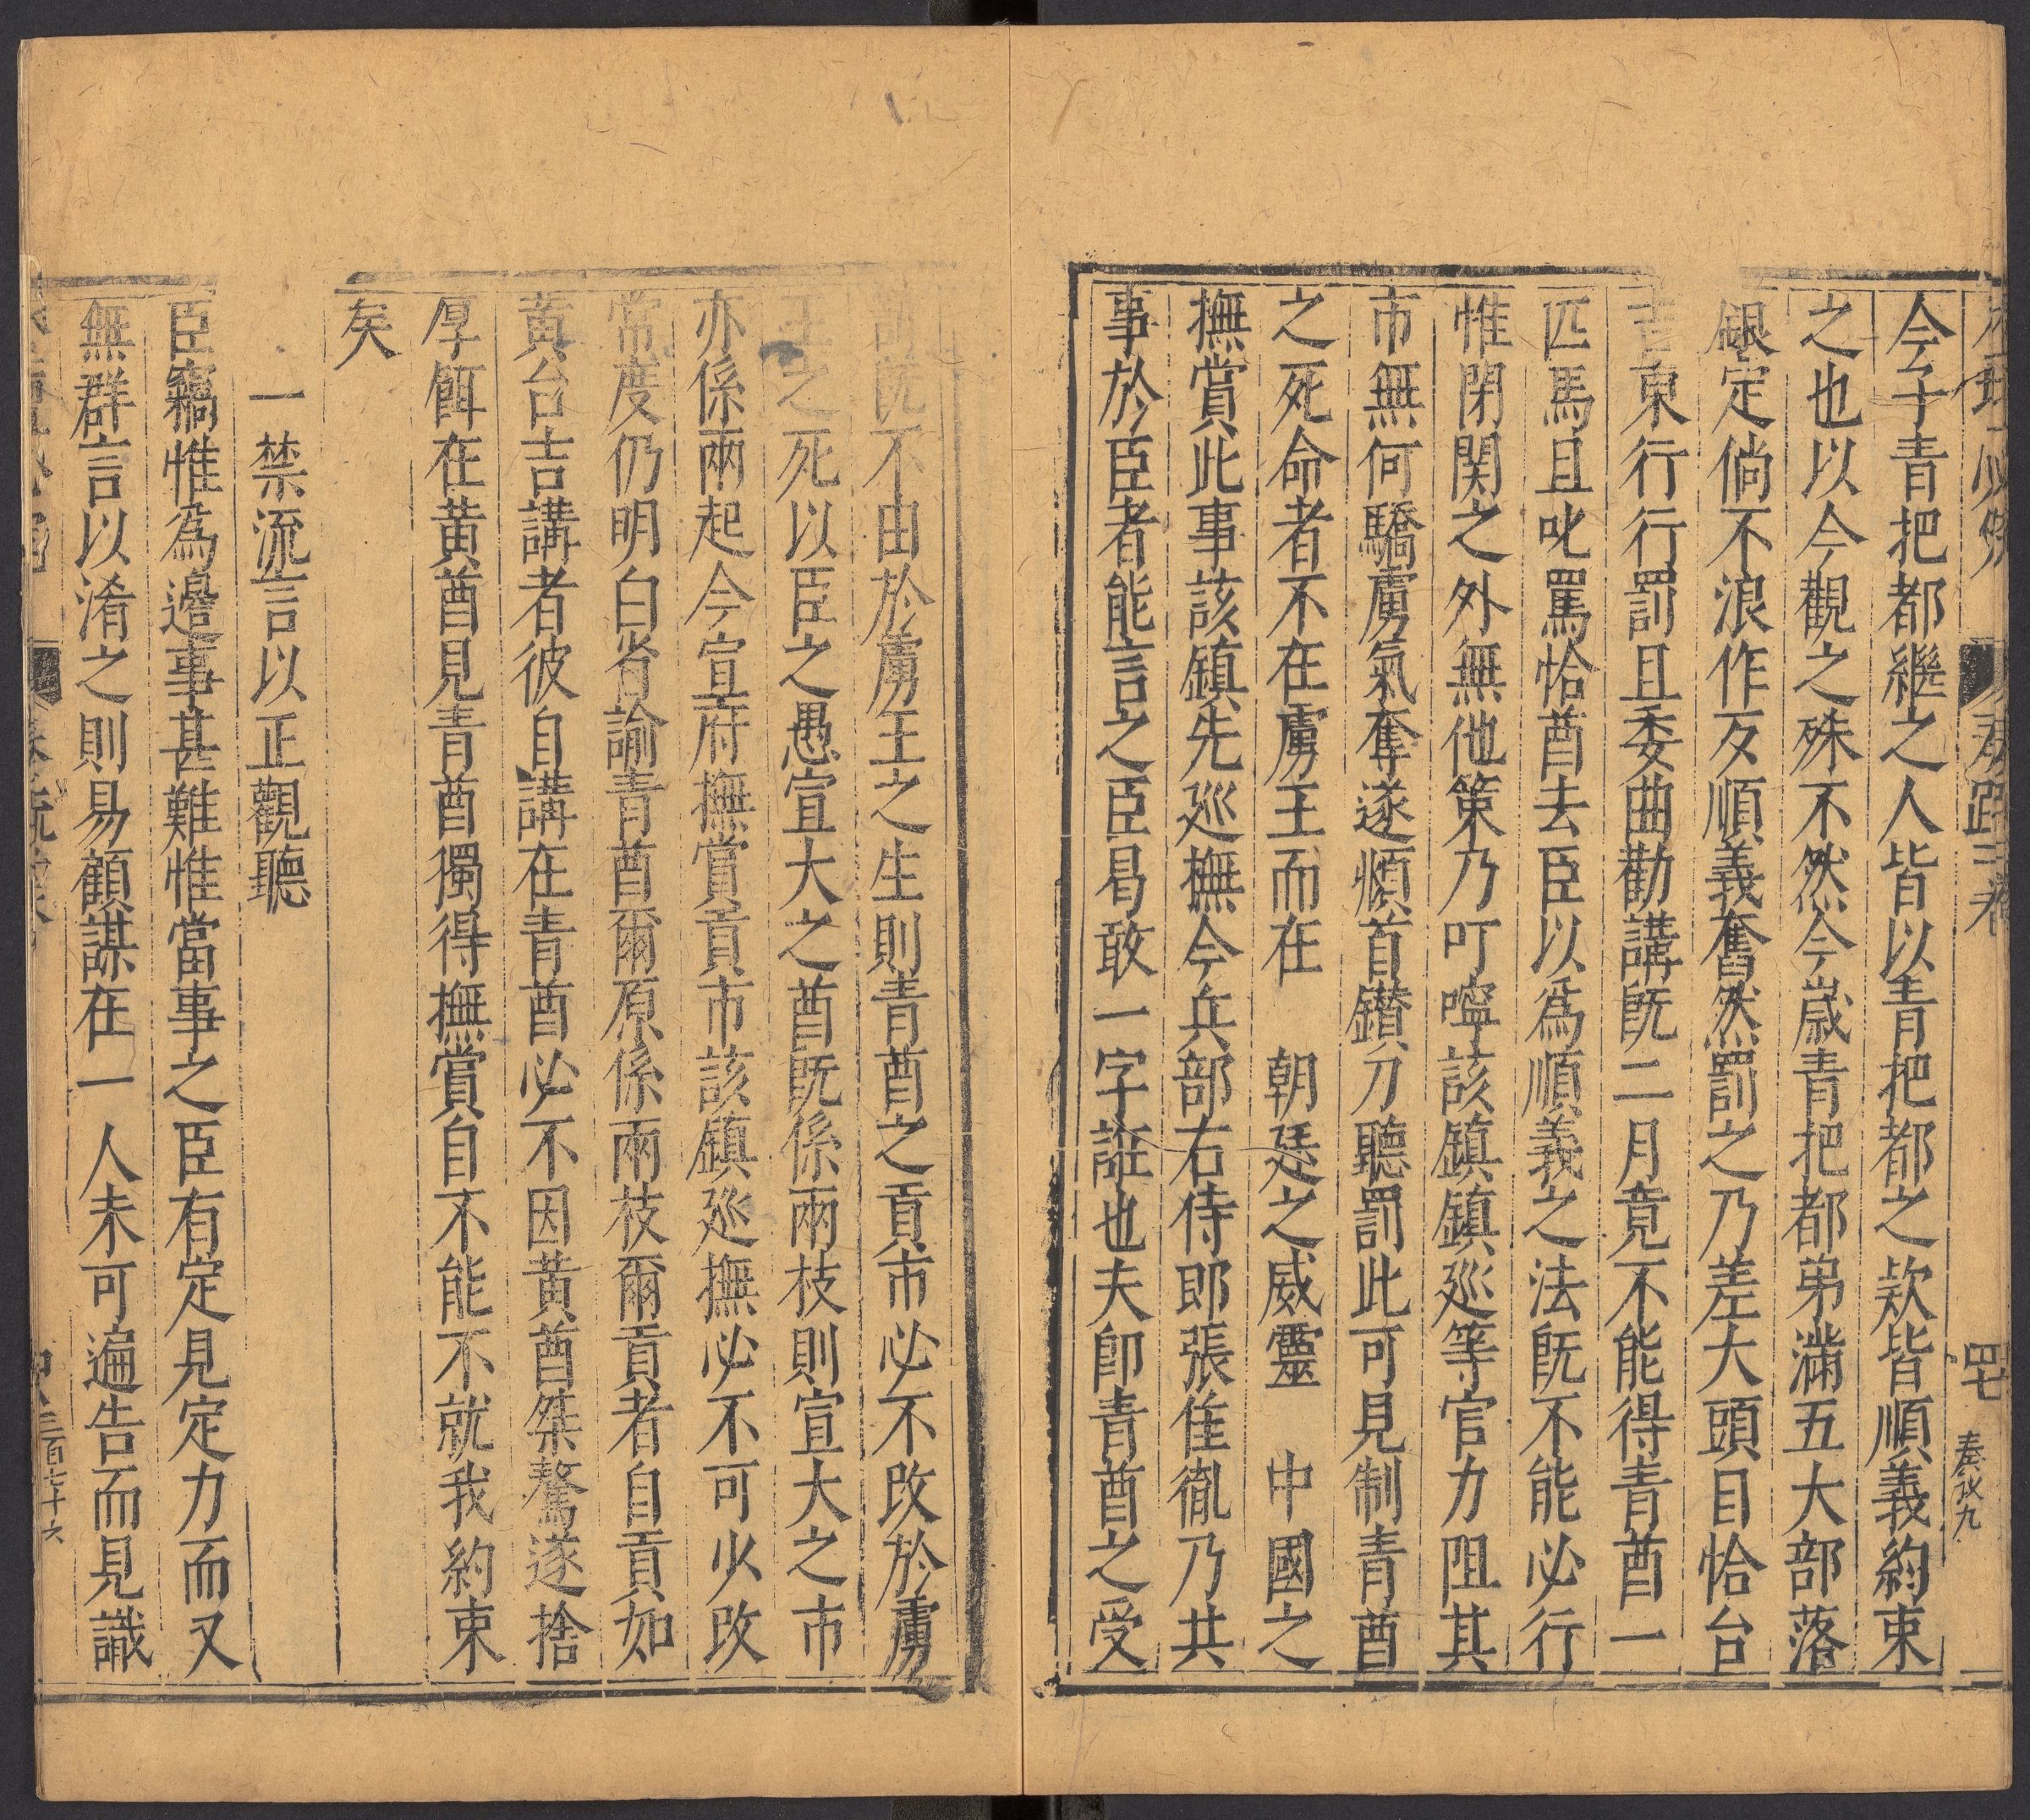 奏疏二卷
四七
奏议九
今子青把都繼之人皆以青把都之欵皆順義約束
之也以今觀之殊不然今歲青把都弟滿五大部落
銀定倘不浪作歹順義奮然罰之乃差大頭目恰台
吉東行行罰且委曲勸講旣二月竟不能得青酋一
匹馬且叱罵恰酋去臣以爲順義之法旣不能必行
惟閉関之外無他策乃叮嚀該鎮鎮廵等官力阻其
市無何驕虜氣奪遂頫首鑚刀聽罰此可見制青酋
之死命者不在虜王而在 朝廷之威靈 中國之
撫賞此事該鎮先廵撫今兵部右侍郎張佳胤乃共
事於臣者能言之臣曷敢一字誑也夫卽青酋之受
罰旣不由於虜王之生則青酋之貢市必不改於虜
王之死以臣之愚宣大之酋旣係兩枝則宣大之市
亦係兩起今宣府撫賞貢市該鎮廵撫必不可少改
常度仍明白省諭青酋爾原係兩枝爾貢者自貢如
黃台吉講者彼自講在青酋必不因黃酋桀驁遂捨
厚餌在黃酋見青酋獨得撫賞自不能不就我約束
矣
一禁流言以正觀聽
臣竊惟爲邊事甚難惟當事之臣有定見定力而又
無群言以淆之則易顧謀在一人未可遍告而見識
三百七十六